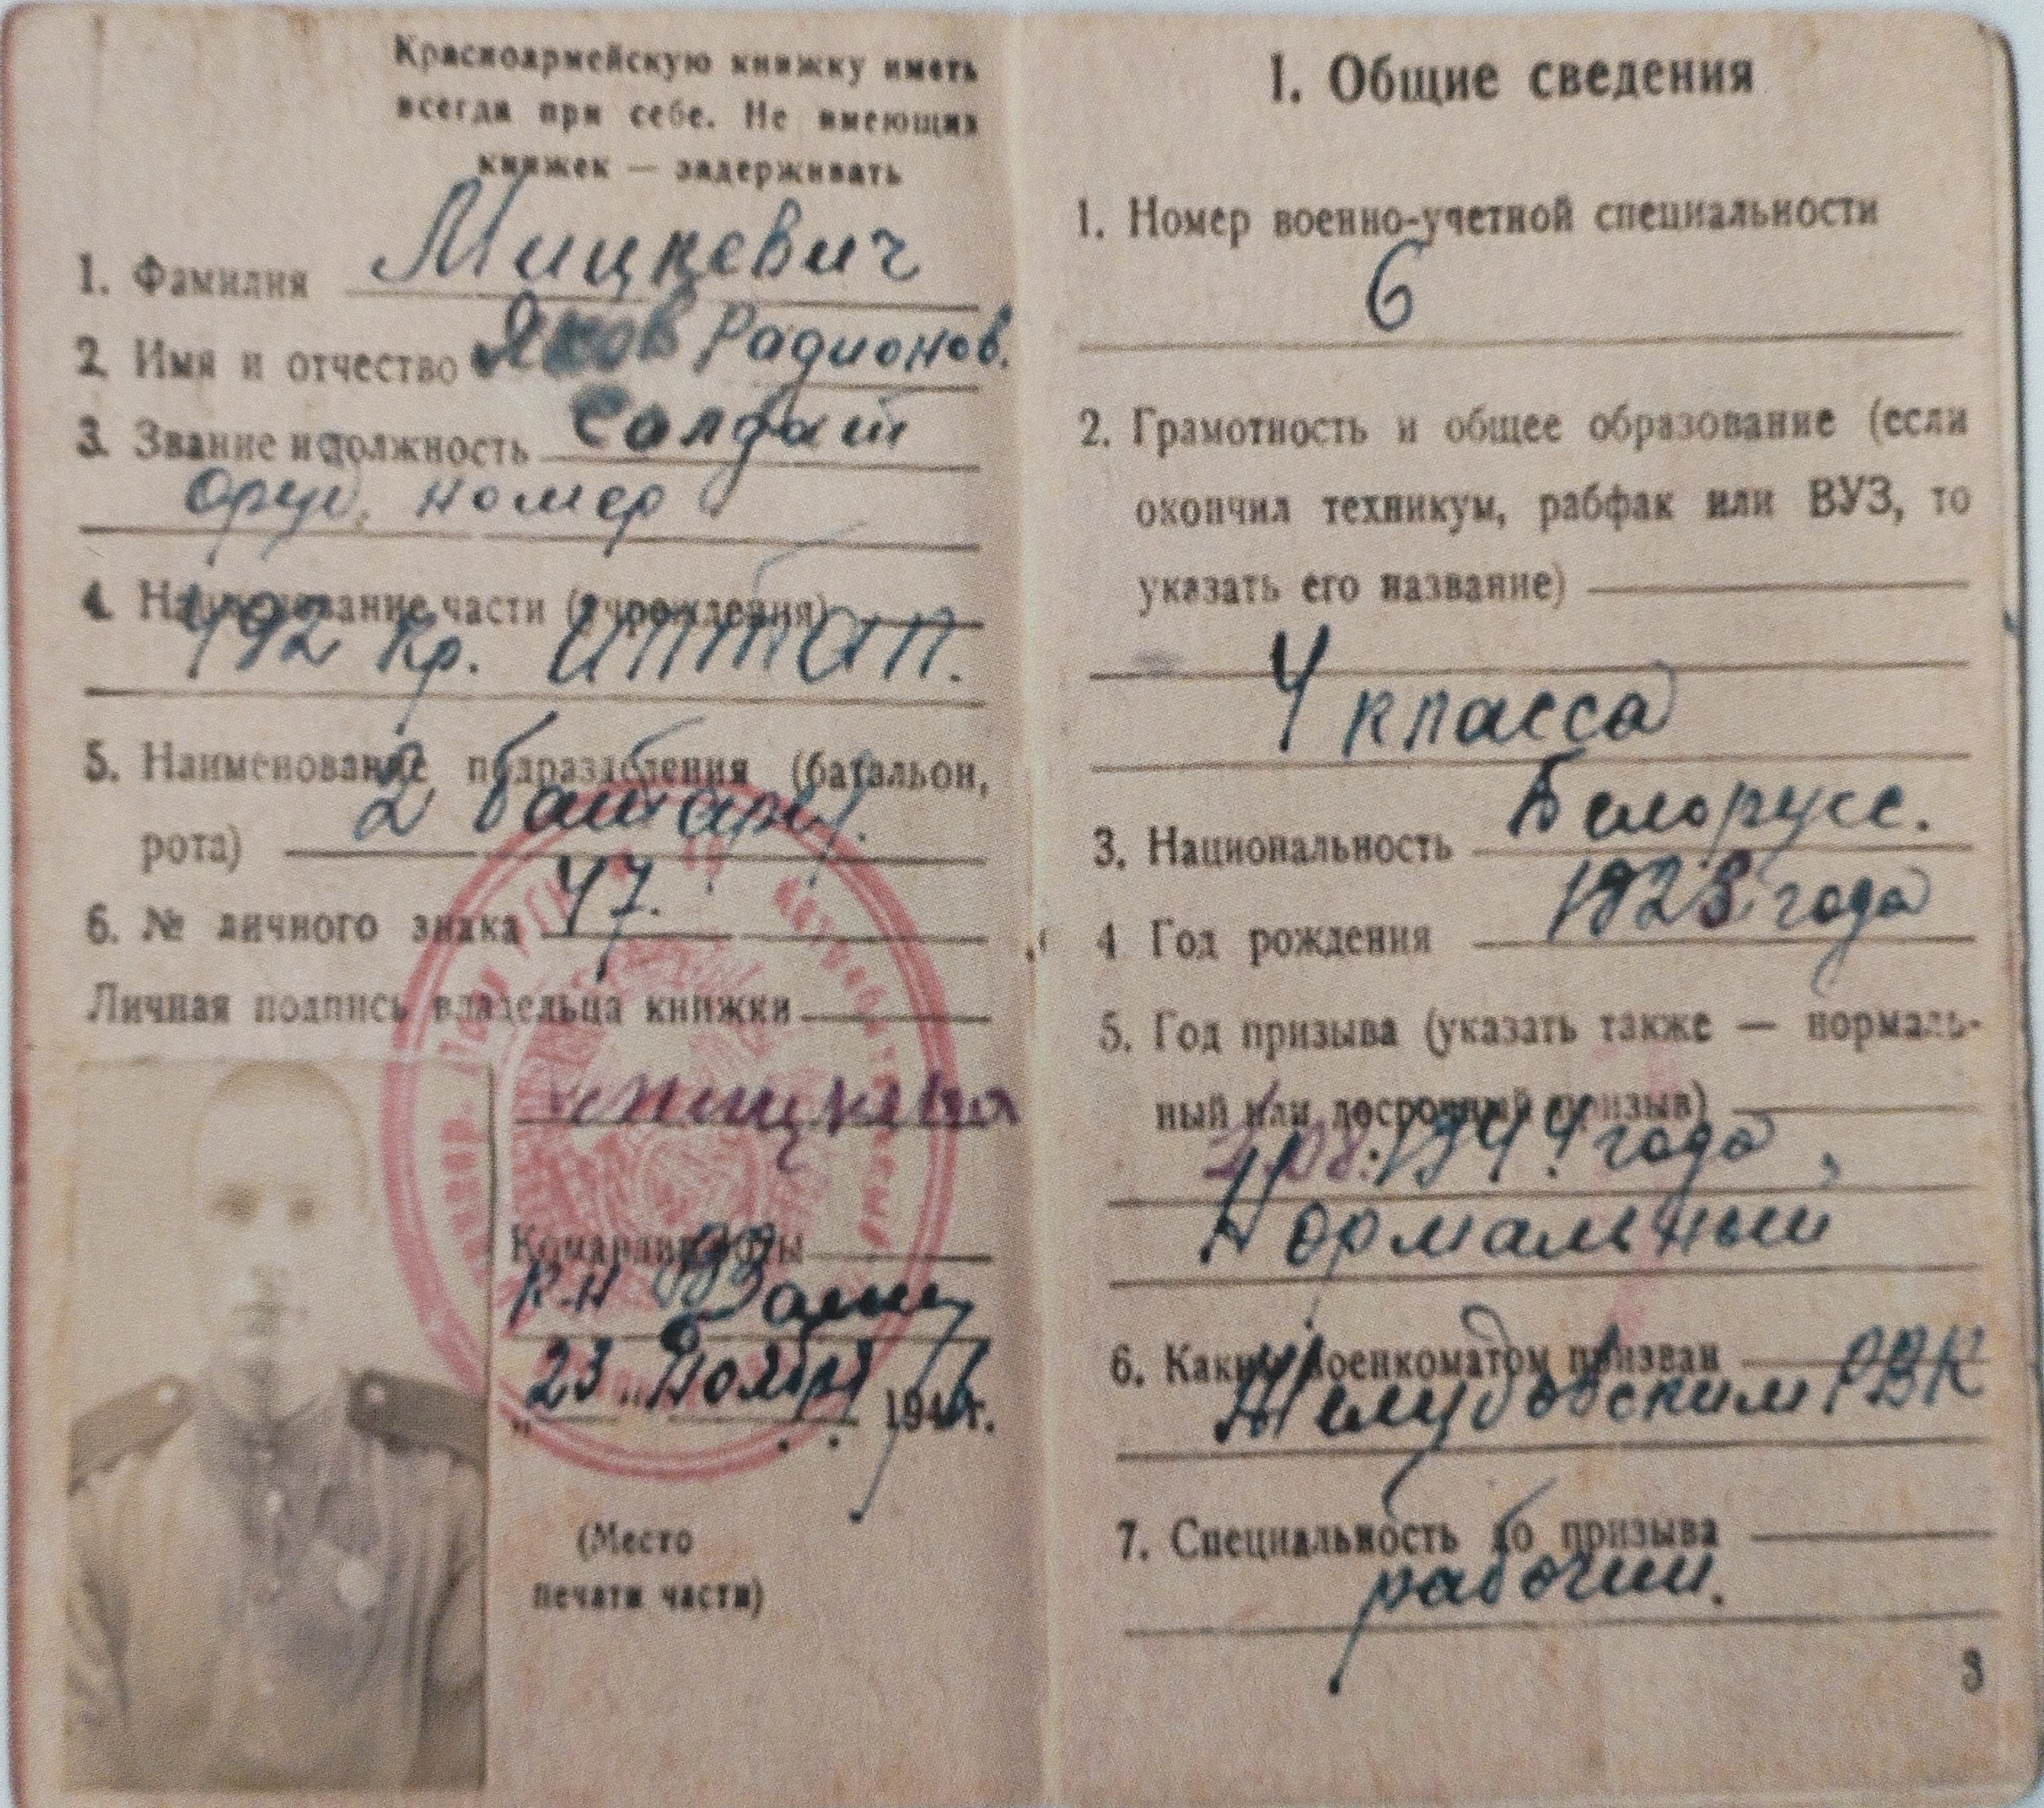 Красноармейскую книжку иметь
всегда при себе. Не имеющих
книжек — задерживать
1. Фамилия Мицкевич
2. Имя и отчество Яков Радионов.
3. Звание и должность Солдат
оруд. номер
4. Наименование части (учреждения)
492 Кр. ИПТАП.
5. Наименование подразделения (батальон,
2 батарея.
рота)
6. № личного знака 47.
Личная подпись владельца книжки
Командир роты
к-н
23 Ноября 194 г.
(Место
печати части)
I. Общие сведения
1. Номер военно-учетной специальности
6
2. Грамотность и общее образование (если
окончил техникум, рабфак или ВУЗ, то
указать его название)
4 класса
3. Национальность Белорусс.
4 Год рождения 1923 года
5. Год призыва (указать также — нормаль-
ный или досрочный призыв)
1944 года,
Нормальный
6. Каким военкоматом призван
Желудовским РВК
7. Специальность до призыва
рабочий.
3